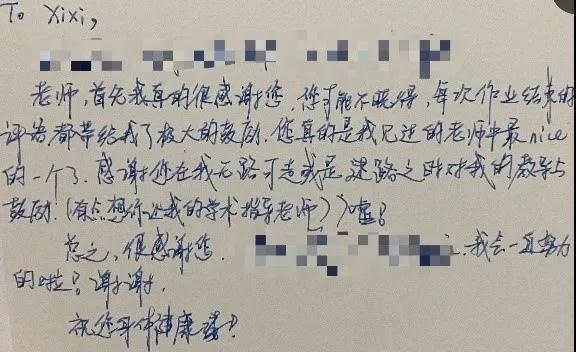 To Xixi,
老师,首先我真的很感谢您.您可能不晓得,每次作业结束的
评语都带给我了极大的鼓励.您真的是我见过的老师中最nice
的一个了.感谢您在我无路可走或是迷路之时对我的教导与
鼓励.(有点想你让我的学术指导老师)嘘!
总之,很感谢您. 我会一直努力
的啦!谢谢.
祝您身体健康